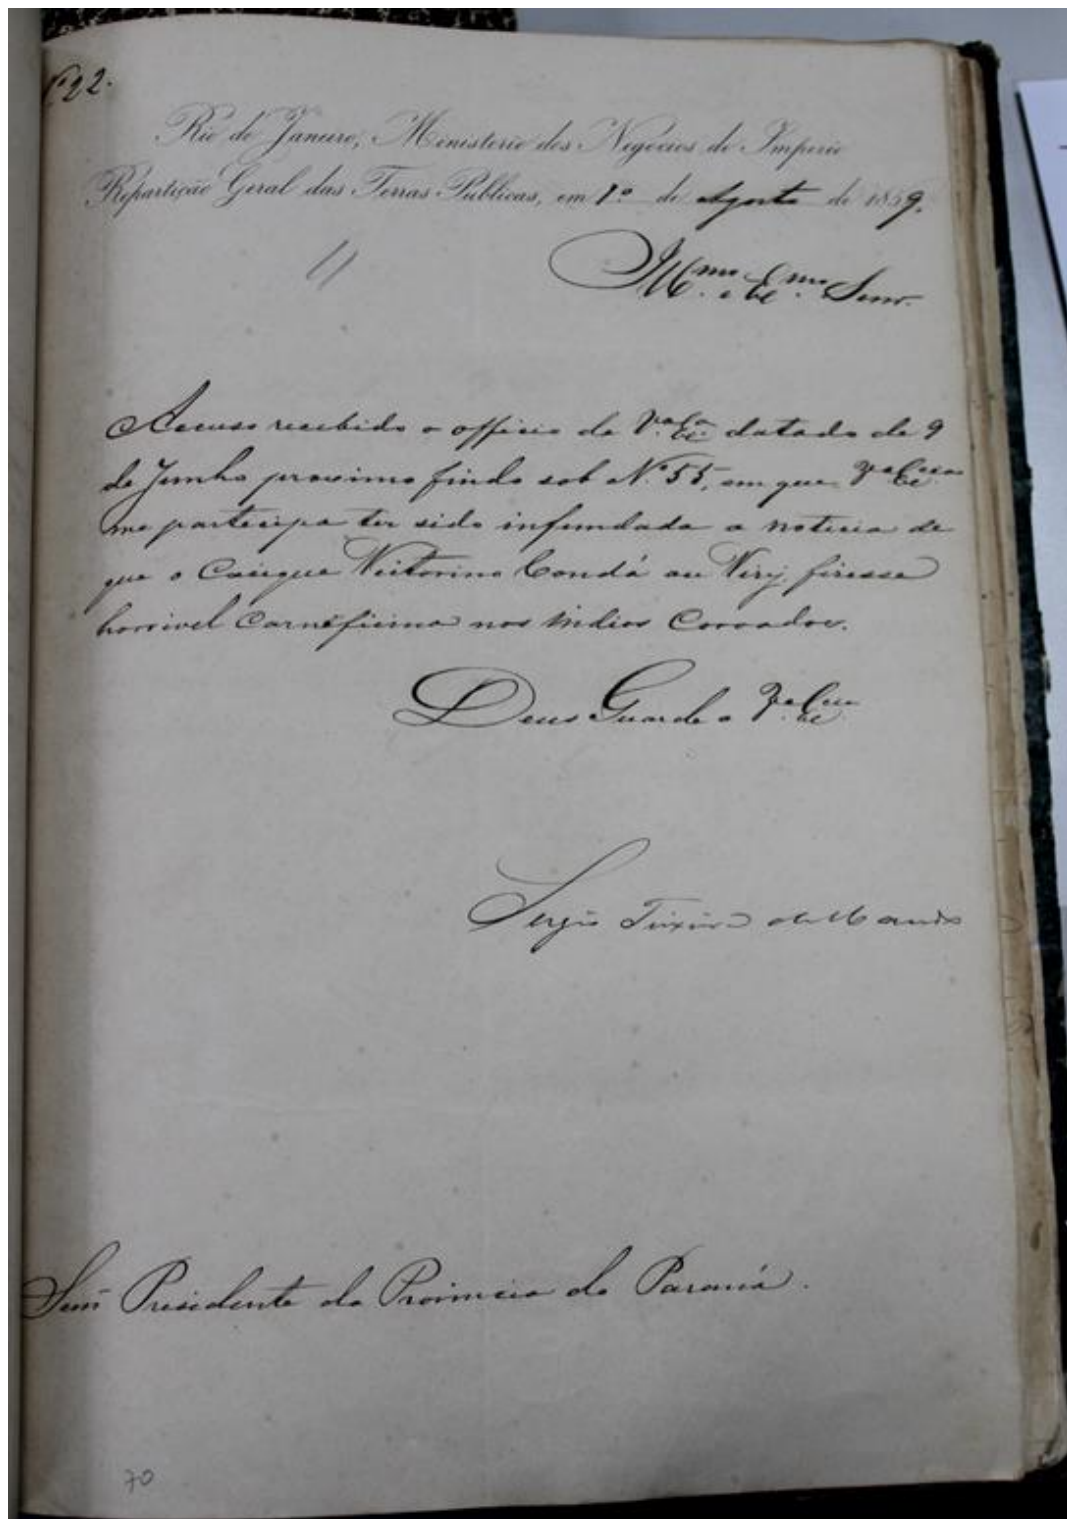 Nº 22.
Rio de Janeiro, Ministerio dos Negocios do Imperio
Repartição Geral das Terras Publicas, em 1º de Agosto de 1859.
Illmo. e Exmo. Senr.
Accuso recebido o officio de Va. Exa. datado de 9
de Junho proximo findo sob Nº 55, em que Va. Excia.
me participa ter sido infundada a noticia de
que o Cacique Victorino Condá ou Viry, fizesse
horrivel carneficina nos Indios Coroados.
Deus Guarde a Va. Excia.
Sergio Teixeira de Macedo
Senr. Presidente da Provincia do Paraná.
70